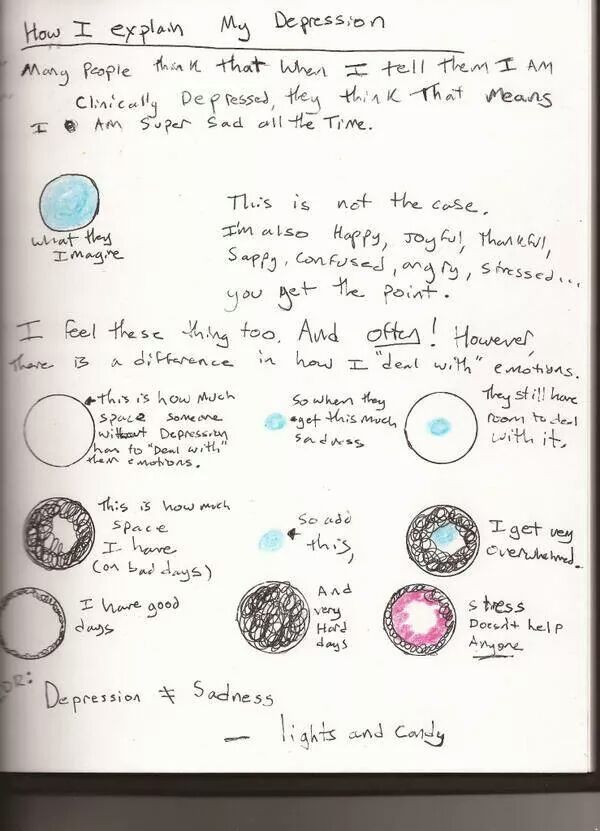 How I explain My Depression
Many People think that when I tell them I AM
Clinically Depressed, they think That Means
I AM Super Sad all the Time.
what they
Imagine
This is not the case.
I'm also Happy, Joyful, Thankful,
Sappy, confused, angry, stressed...
you get the point.
I feel these thing too. And often! However,
there is a difference in how I "deal with" emotions.
this is how much
space someone
without Depression
has to "Deal with"
their emotions.
So when they
get this much
sadness
They still have
room to deal
with it.
This is how much
space
I have
(on bad days)
So add
this,
I get very
overwhelmed.
I have good
days
And
very
Hard
days
stress
Doesn't help
Anyone
DR:
Depression ≠ Sadness
— lights and Candy